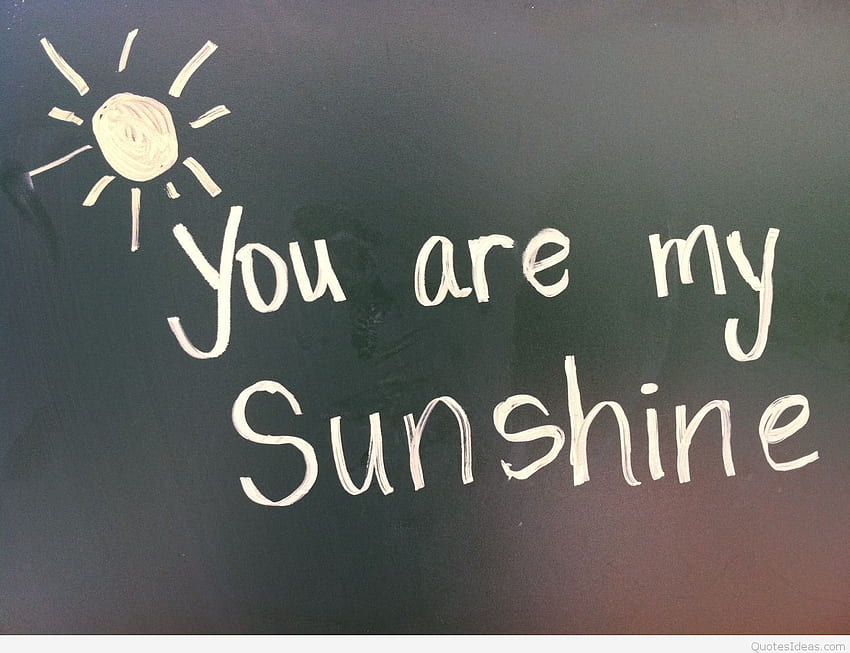 You are my
Sunshine
QuotesIdeas.com